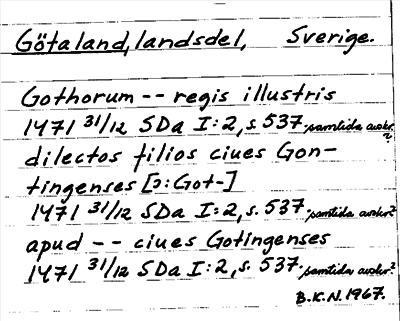 Götaland, landsdel, Sverige.
Gothorum -- regis illustris
1471 31/12 SDa I:2, s. 537. samtida avskr.?
dilectos filios ciues Gon-
tingenses [ɔ: Got-]
1471 31/12 SDa I:2, s. 537. samtida avskr?
apud -- ciues Gotingenses
1471 31/12 SDa I:2, s. 537. samtida avskr?
B.K.N. 1967.